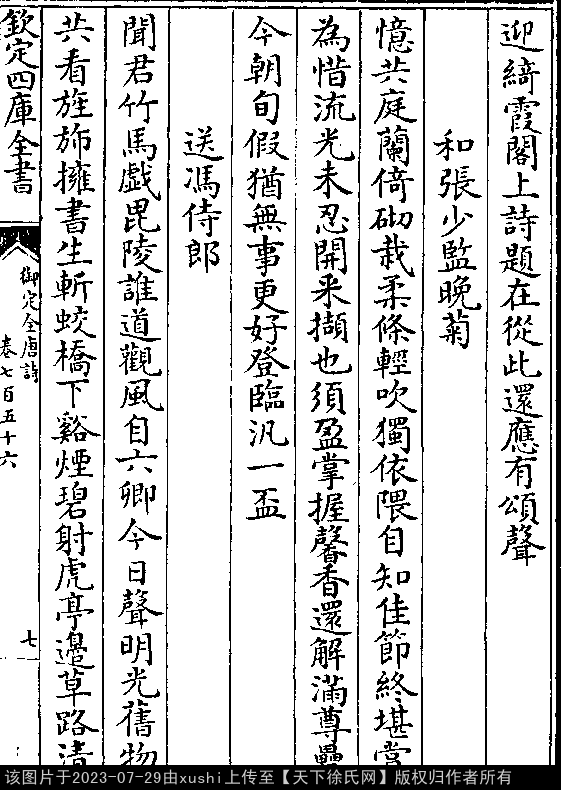 迎綺霞閣上詩題在從此還應有頌聲
和張少監晚菊
憶共庭蘭倚砌栽柔條輕吹獨依隈自知佳節終堪賞
為惜流光未忍開采擷也須盈掌握馨香還解滿尊罍
今朝旬假猶無事更好登臨汎一盃
送馮侍郎
聞君竹馬戲毘陵誰道觀風自六卿今日聲明光舊物
共看旌斾擁書生斬蛟橋下谿煙碧射虎亭邊草路清
欽定四庫全書
御定全唐詩
卷七百五十六
七
该图片于2023-07-29由xushi上传至【天下徐氏网】版权归作者所有